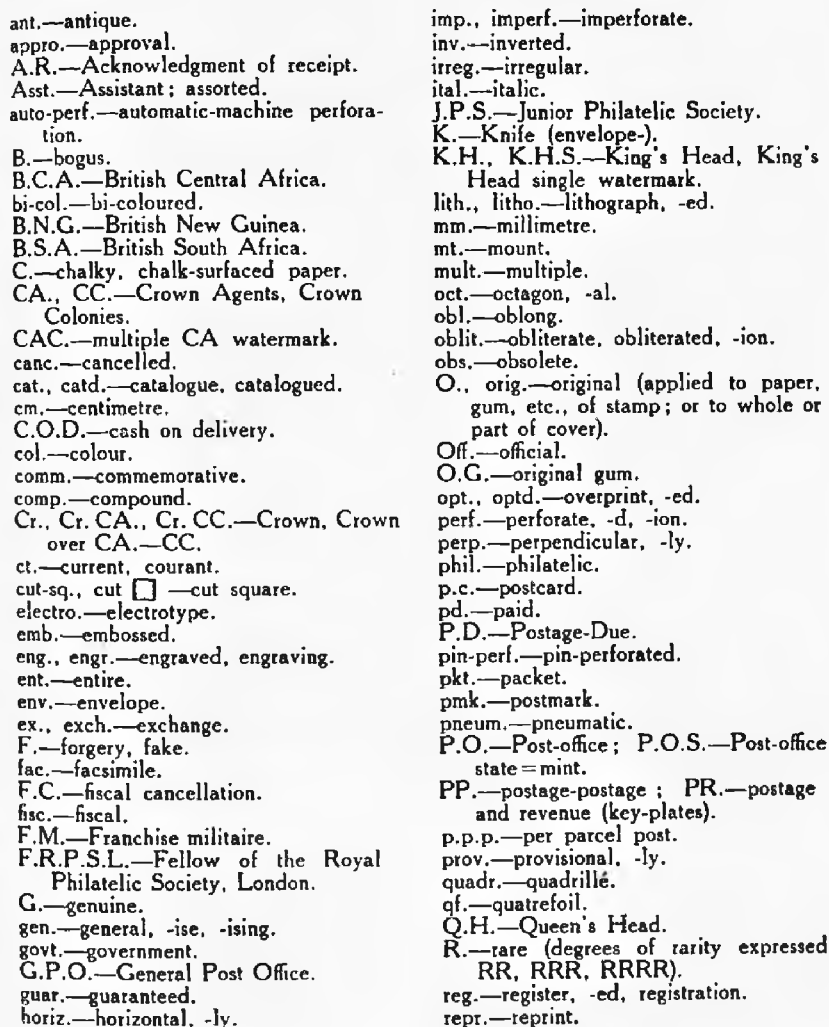 ant.—antique.
appro.—approval.
A.R.—Acknowledgment of receipt.
Asst.—Assistant; assorted.
auto-perf.—automatic-machine perfora-
tion.
B.—bogus.
B.C.A.—British Central Africa.
bi-col.—bi-coloured.
B.N.G.—British New Guinea.
B.S.A.—British South Africa.
C.—chalky, chalk-surfaced paper.
CA., CC.—Crown Agents, Crown
Colonies.
CAC.—multiple CA watermark.
canc.—cancelled.
cat., catd.—catalogue, catalogued.
cm.—centimetre.
C.O.D.—cash on delivery.
col.—colour.
comm.—commemorative.
comp.—compound.
Cr., Cr. CA., Cr. CC.—Crown, Crown
over CA.—CC.
ct.—current, courant.
cut-sq., cut □ —cut square.
electro.—electrotype.
emb.—embossed.
eng., engr.—engraved, engraving.
ent.—entire.
env.—envelope.
ex., exch.—exchange.
F.—forgery, fake.
fac.—facsimile.
F.C.—fiscal cancellation.
fisc.—fiscal.
F.M.—Franchise militaire.
F.R.P.S.L.—Fellow of the Royal
Philatelic Society, London.
G.—genuine.
gen.—general, -ise, -ising.
govt.—government.
G.P.O.—General Post Office.
guar.—guaranteed.
horiz.—horizontal, -ly.
imp., imperf.—imperforate.
inv.—inverted.
irreg.—irregular.
ital.—italic.
J.P.S.—Junior Philatelic Society.
K.—Knife (envelope-).
K.H., K.H.S.—King's Head, King's
Head single watermark.
lith., litho.—lithograph, -ed.
mm.—millimetre.
mt.—mount.
mult.—multiple.
oct.—octagon, -al.
obl.—oblong.
oblit.—obliterate, obliterated, -ion.
obs.—obsolete.
O., orig.—original (applied to paper,
gum, etc., of stamp; or to whole or
part of cover).
Off.—official.
O.G.—original gum.
opt., optd.—overprint, -ed.
perf.—perforate, -d, -ion.
perp.—perpendicular, -ly.
phil.—philatelic.
p.c.—postcard.
pd.—paid.
P.D.—Postage-Due.
pin-perf.—pin-perforated.
pkt.—packet.
pmk.—postmark.
pneum.—pneumatic.
P.O.—Post-office; P.O.S.—Post-office
state=mint.
PP.—postage-postage; PR.—postage
and revenue (key-plates).
p.p.p.—per parcel post.
prov.—provisional, -ly.
quadr.—quadrillé.
qf.—quatrefoil.
Q.H.—Queen's Head.
R.—rare (degrees of rarity expressed
RR, RRR, RRRR).
reg.—register, -ed, registration.
repr.—reprint.